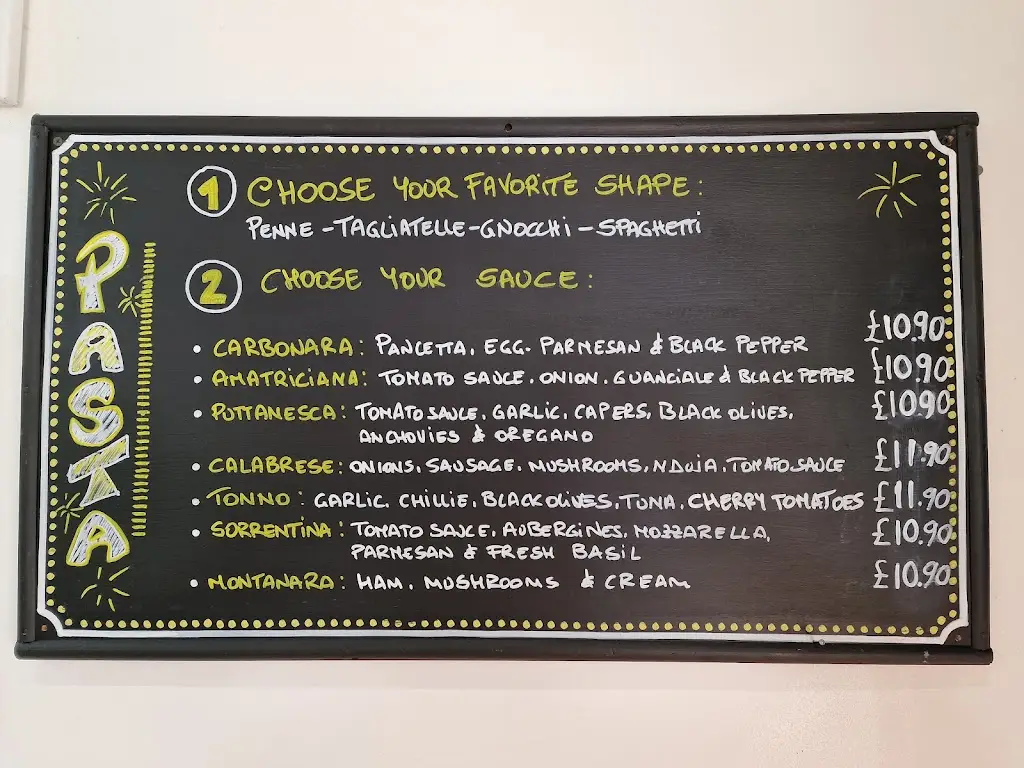 PASTA
1 CHOOSE YOUR FAVORITE SHAPE:
PENNE - TAGLIATELLE - GNOCCHI - SPAGHETTI
2 CHOOSE YOUR SAUCE:
• CARBONARA: PANCETTA, EGG. PARMESAN & BLACK PEPPER £10.90
• AMATRICIANA: TOMATO SAUCE, ONION, GUANCIALE & BLACK PEPPER £10.90
• PUTTANESCA: TOMATO SAUCE, GARLIC, CAPERS, BLACK OLIVES, £10.90
ANCHOVIES & OREGANO
• CALABRESE: ONIONS, SAUSAGE, MUSHROOMS, NDUJA, TOMATO SAUCE £11.90
• TONNO: GARLIC, CHILLIE, BLACK OLIVES, TUNA, CHERRY TOMATOES £11.90
• SORRENTINA: TOMATO SAUCE, AUBERGINES, MOZZARELLA, £10.90
PARMESAN & FRESH BASIL
• MONTANARA: HAM, MUSHROOMS & CREAM £10.90